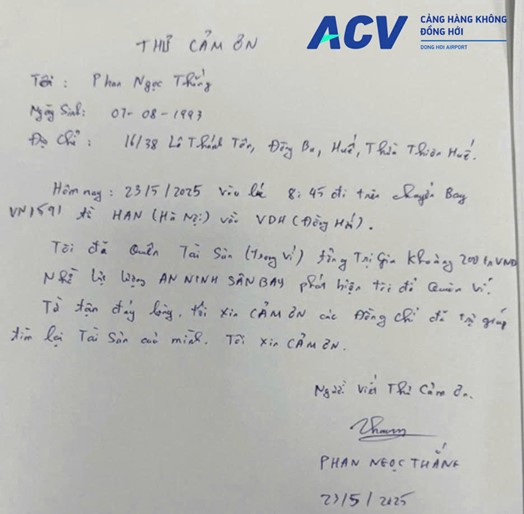 ACV CẢNG HÀNG KHÔNG
ĐỒNG HỚI
DONG HOI AIRPORT
THƯ CẢM ƠN
Tôi : Phan Ngọc Thắng
Ngày Sinh: 07-08-1993
Địa chỉ : 16/38 Lê Thánh Tôn, Đông Ba, Huế, Thừa Thiên Huế.
Hôm nay : 23/5/2025 vào lúc 8:45 đi trên chuyến Bay
VN1591 từ HAN (Hà Nội) vào VDH (Đồng Hới).
Tôi đã Quên Tài Sản (trong ví) tổng Trị Giá Khoảng VND
Nhờ lực lượng AN NINH SÂN BAY phát hiện tôi để Quên Ví.
Từ tận đáy lòng, tôi xin CẢM ƠN các Đồng chí đã trợ giúp
tìm lại Tài Sản của mình. Tôi xin CẢM ƠN.
Người viết Thư Cảm ơn.
PHAN NGỌC THẮNG
23/5/2025